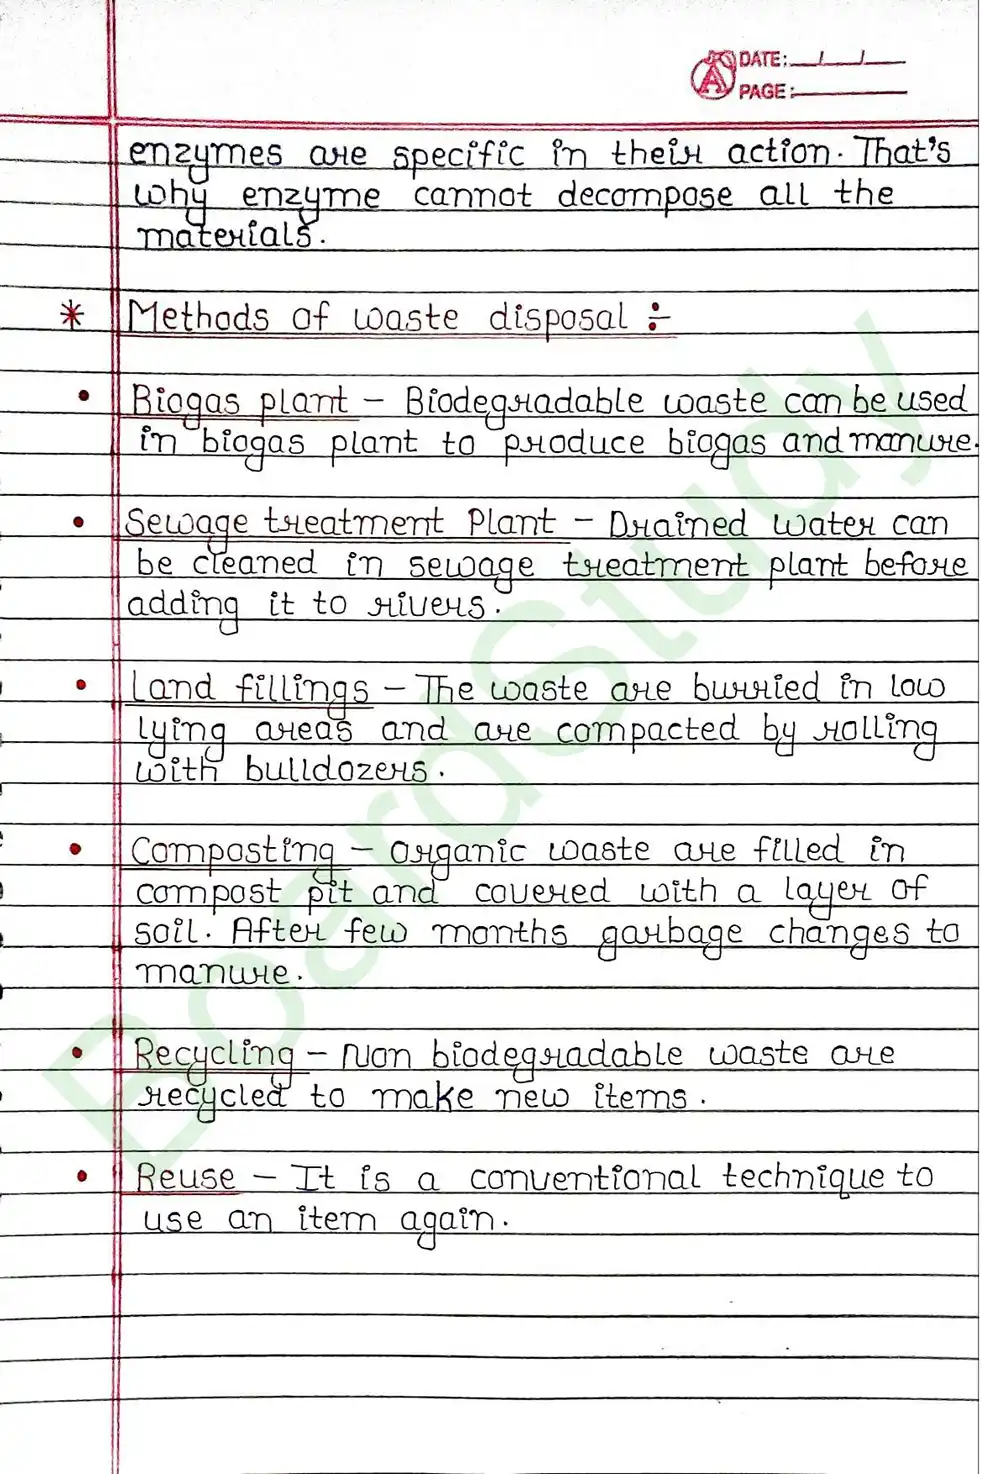 DATE: __/__/__
PAGE: ________
enzymes are specific in their action. That's
why enzyme cannot decompose all the
materials.
* Methods of waste disposal :-
• Biogas plant - Biodegradable waste can be used
in biogas plant to produce biogas and manure.
• Sewage treatment Plant - Drained water can
be cleaned in sewage treatment plant before
adding it to rivers.
• Land fillings - The waste are burried in low
lying areas and are compacted by rolling
with bulldozers.
• Composting - Organic waste are filled in
compost pit and covered with a layer of
soil. After few months garbage changes to
manure.
• Recycling - Non biodegradable waste are
recycled to make new items.
• Reuse - It is a conventional technique to
use an item again.
BoardStudy